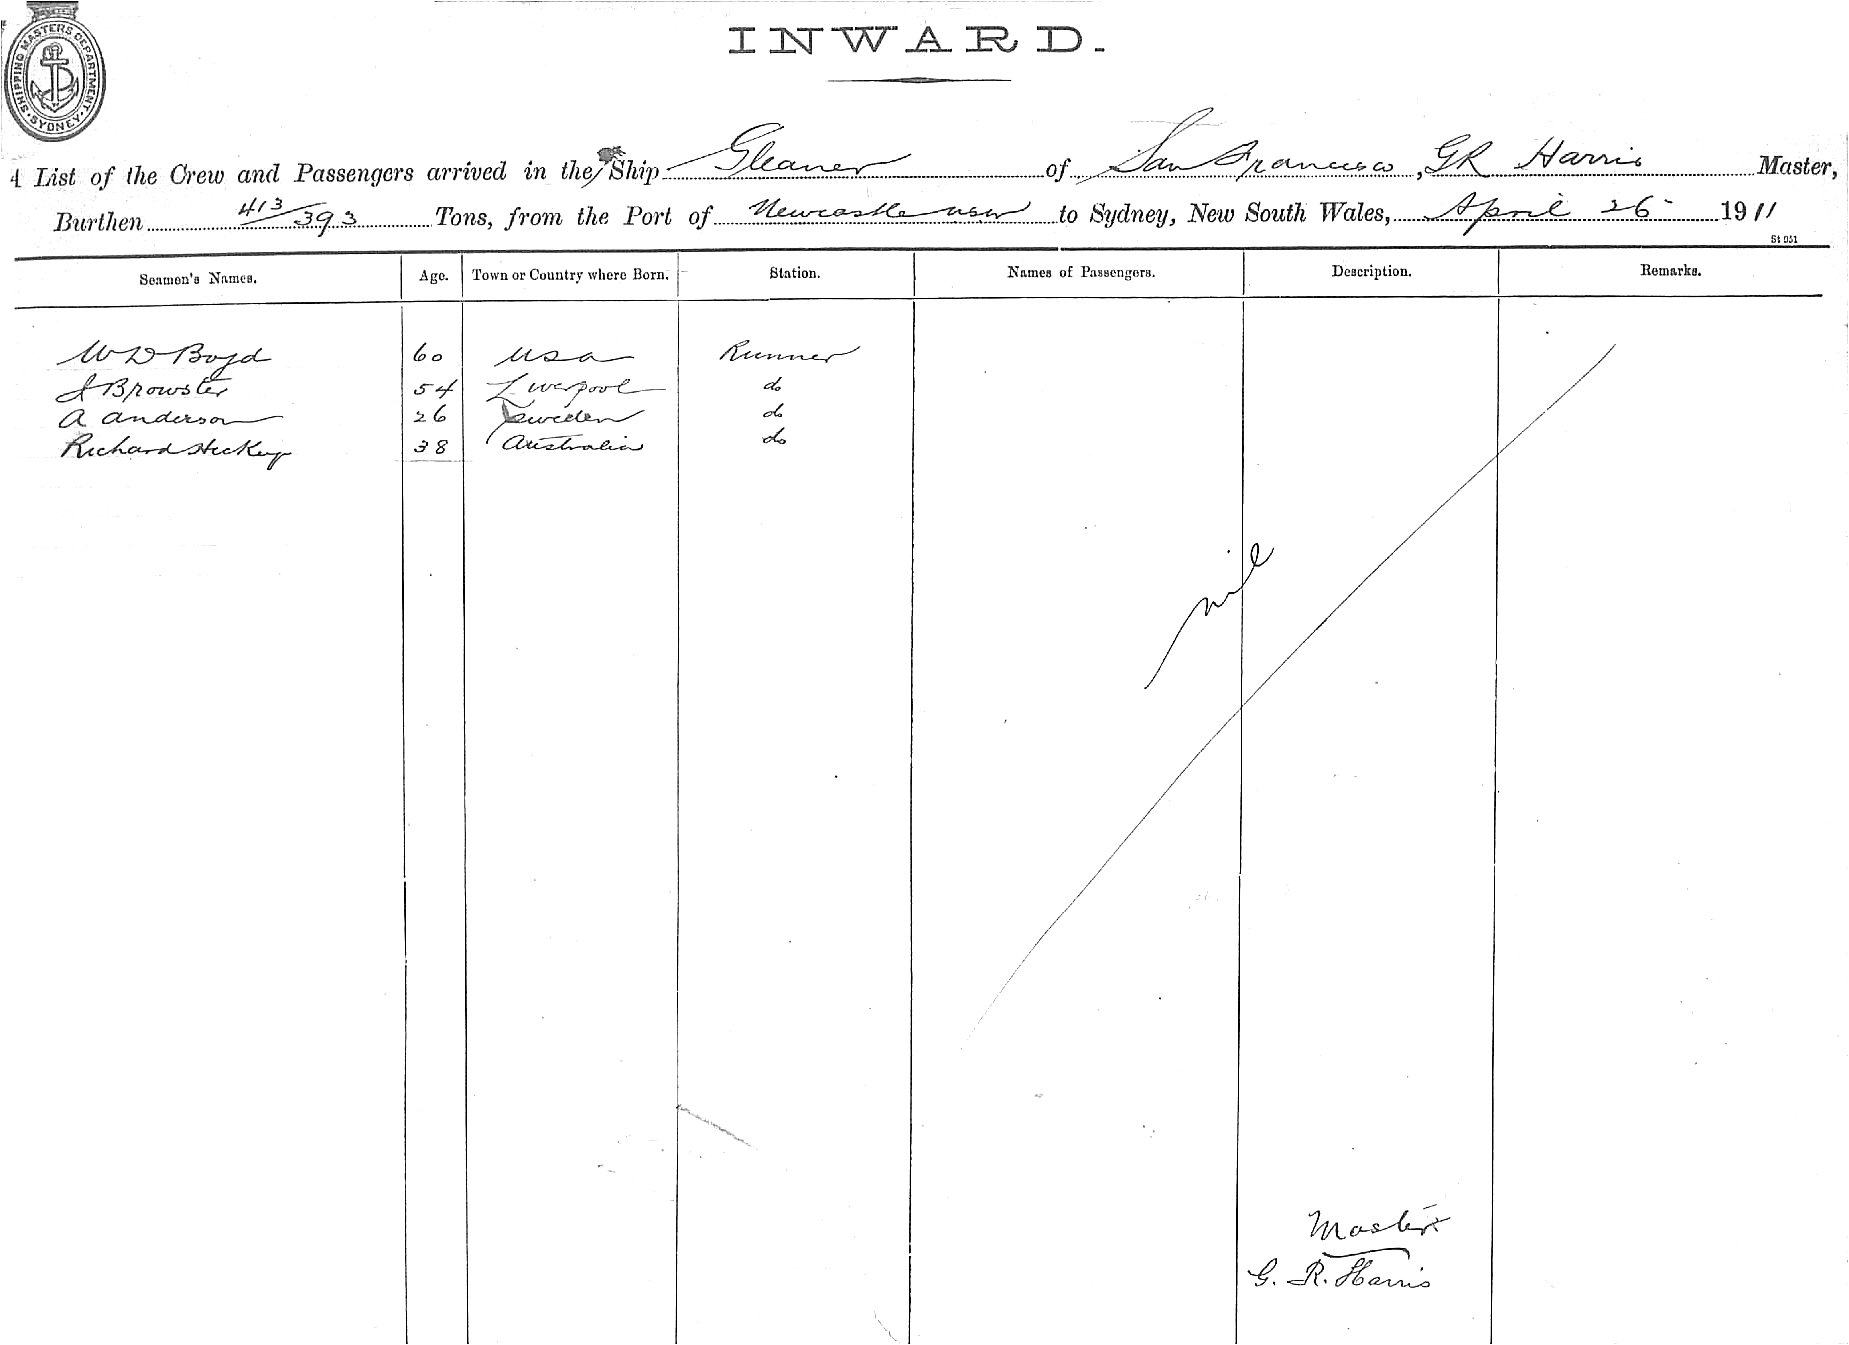 SHIPPING MASTERS DEPARTMENT. SYDNEY.
INWARD.
A List of the Crew and Passengers arrived in the Ship Gleaner of San Francisco, GR Harris Master,
Burthen 413/393 Tons, from the Port of Newcastle nsw to Sydney, New South Wales, April 26 1911
St 951
Seamen's Names. Age. Town or Country where Born. Station. Names of Passengers. Description. Remarks.
W D Boyd 60 USA Runner
J Browster 54 Liverpool do
A Anderson 26 Sweden do
Richard Hickey 38 Australia do
nil
Master
G. R. Harris